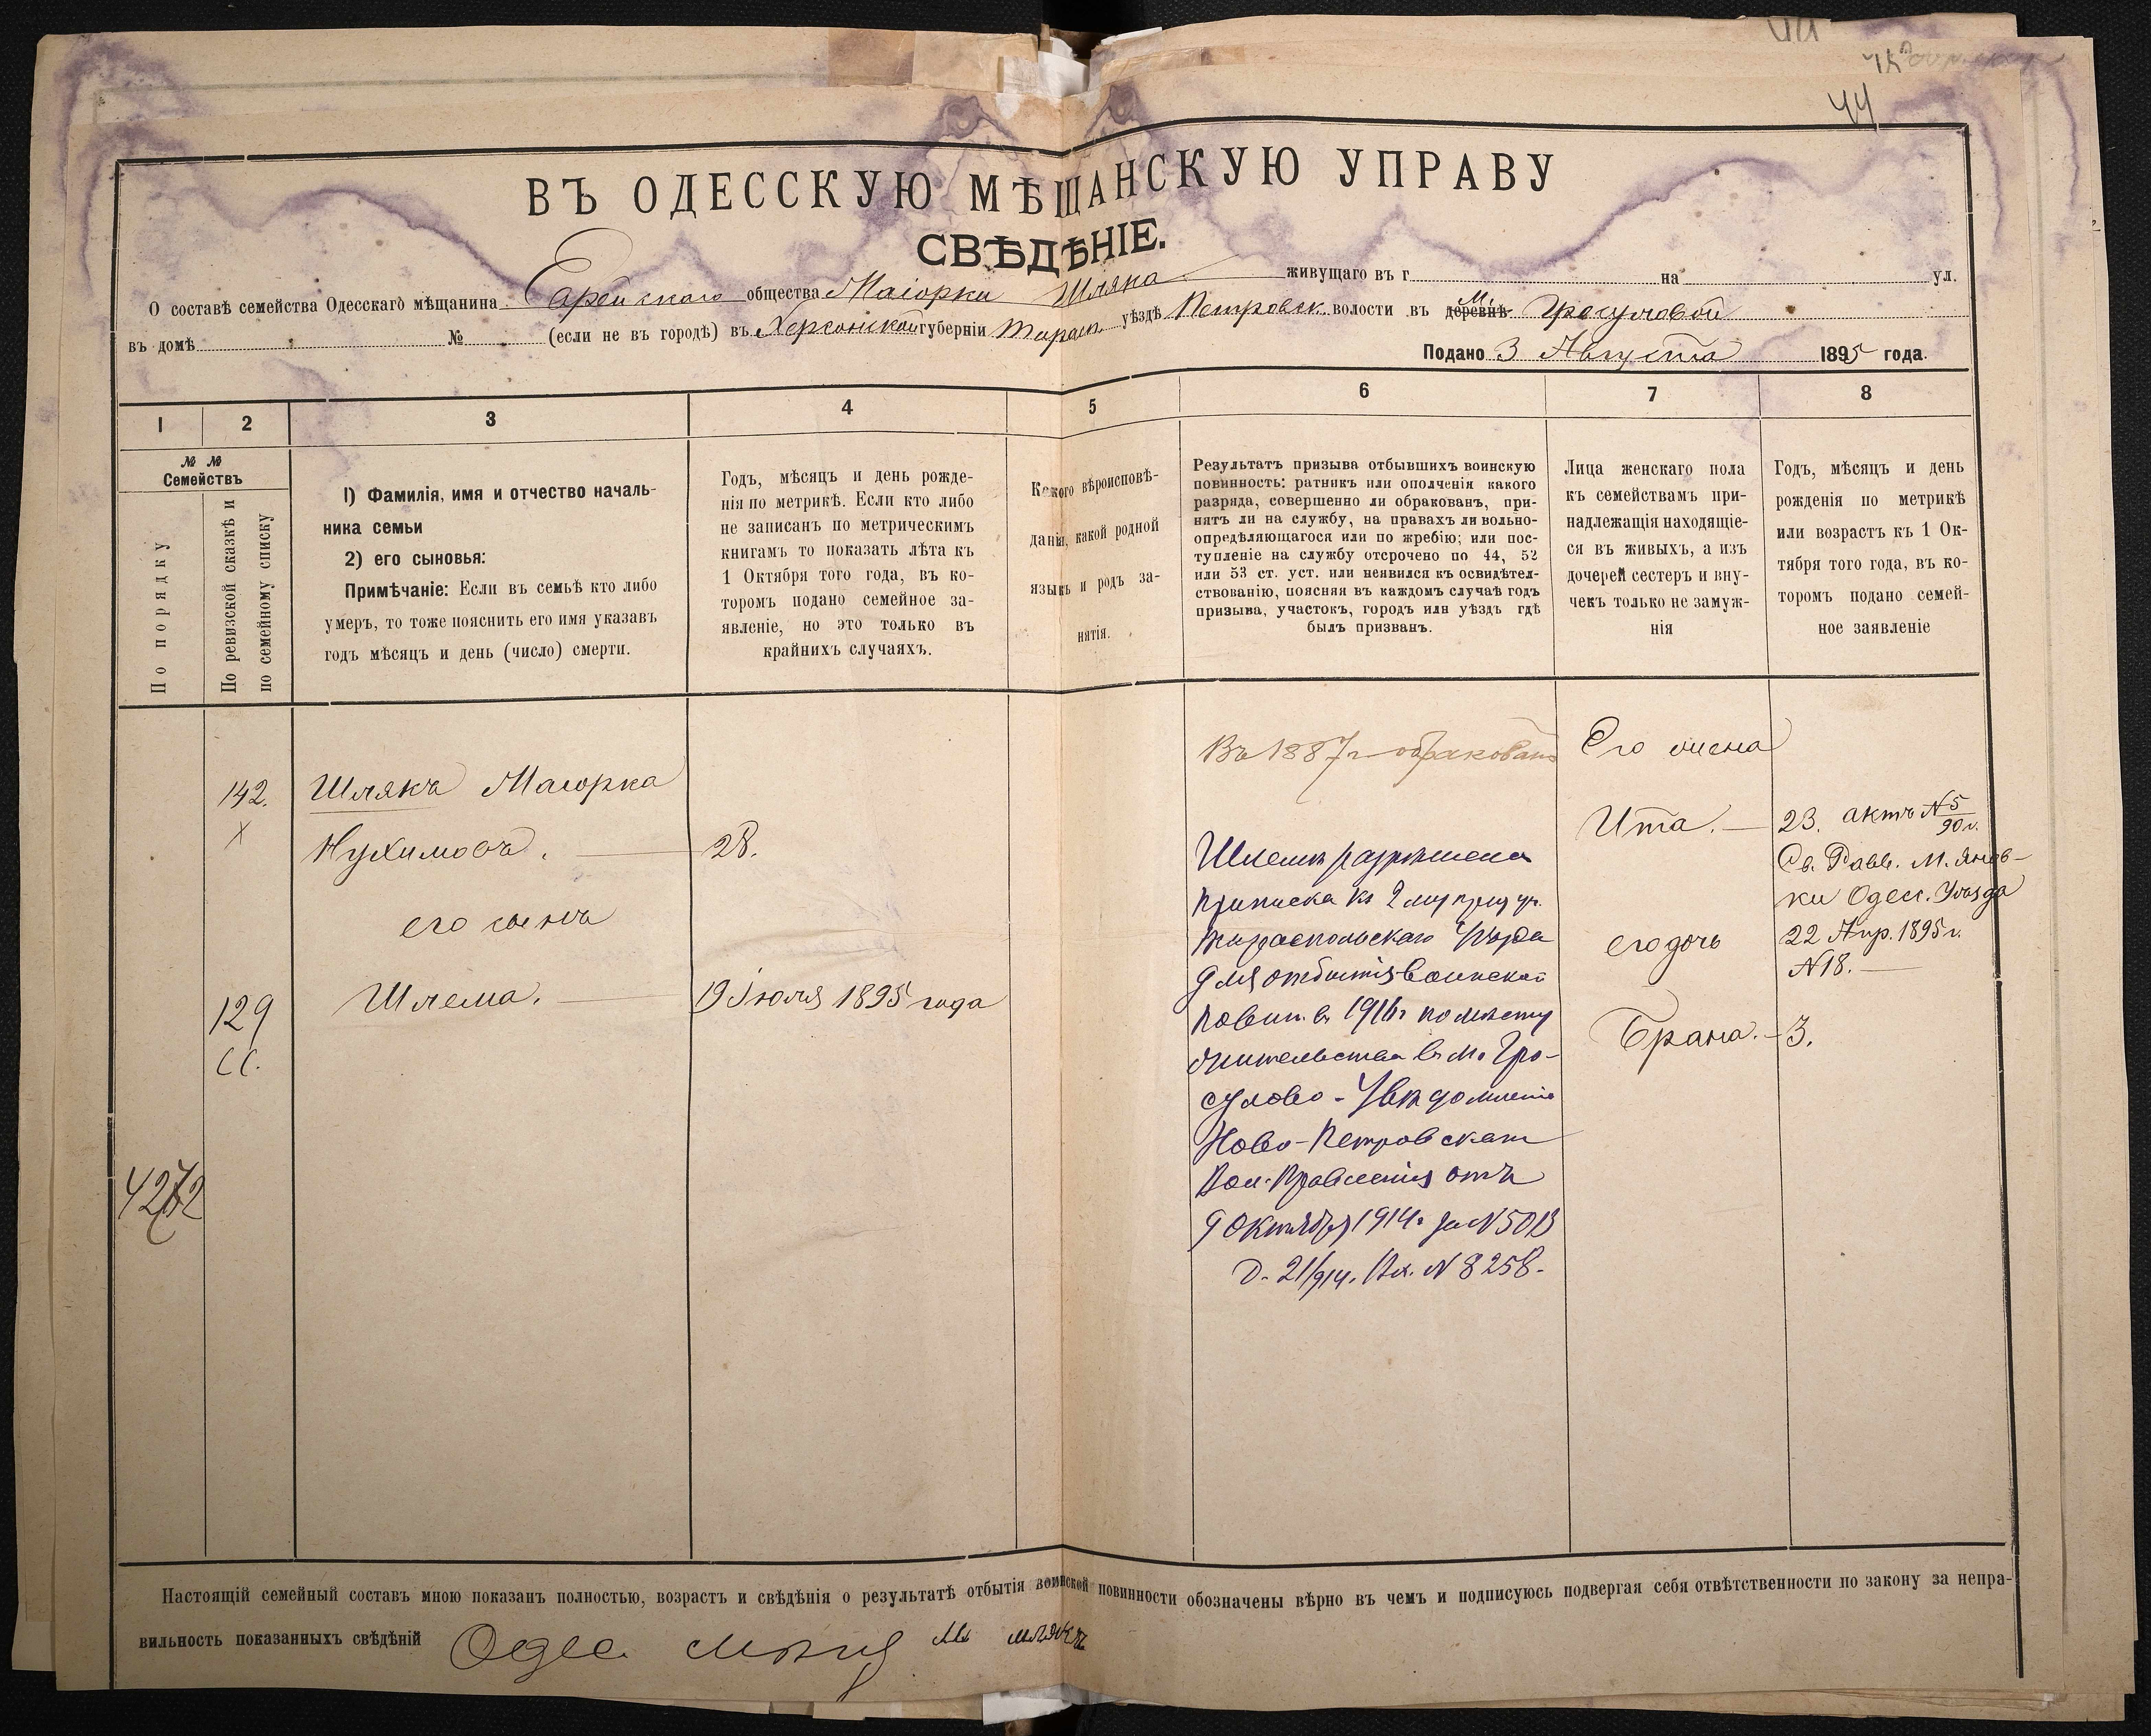 44
44
ВЪ ОДЕССКУЮ МѢЩАНСКУЮ УПРАВУ
СВѢДѢНІЕ.
О составѣ семейства Одесскаго мѣщанина Еврейскаго общества Маіорки Шляка живущаго въ г. на ул.
въ домѣ № (если не въ городѣ) въ Херсонской губерніи Тирасп. уѣздѣ Петровск. волости въ деревнѣ м. Гросуловой
Подано 3 Августа 1895 года.
1 2 3 4 5 6 7 8
№ № Семействъ
По порядку
По ревизской сказкѣ и по семейному списку
1) Фамилія, имя и отчество началь-
ника семьи
2) его сыновья:
Примѣчаніе: Если въ семьѣ кто либо
умеръ, то тоже пояснить его имя указавъ
годъ мѣсяцъ и день (число) смерти.
Годъ, мѣсяцъ и день рожде-
нія по метрикѣ. Если кто либо
не записанъ по метрическимъ
книгамъ то показать лѣта къ
1 Октября того года, въ ко-
торомъ подано семейное за-
явленіе, но это только въ
крайнихъ случаяхъ.
Какого вѣроисповѣ-
данія, какой родной
языкъ и родъ за-
нятія.
Результатъ призыва отбывшихъ воинскую
повинность: ратникъ или ополченія какого
разряда, совершенно ли обракованъ, при-
нятъ ли на службу, на правахъ ли вольно-
опредѣляющагося или по жребію; или пос-
тупленіе на службу отсрочено по 44, 52
или 53 ст. уст. или неявился къ освидѣтел-
ствованію, поясняя въ каждомъ случаѣ годъ
призыва, участокъ, городъ или уѣздъ гдѣ
былъ призванъ.
Лица женскаго пола
къ семействамъ при-
надлежащія находящіе-
ся въ живыхъ, а изъ
дочерей сестеръ и вну-
чекъ только не замуж-
нія
Годъ, мѣсяцъ и день
рожденія по метрикѣ
или возрастъ къ 1 Ок-
тября того года, въ ко-
торомъ подано семей-
ное заявленіе
142.
х
Шлякъ Маіорка
Нухимовъ. 28.
его сынъ
129
СС.
Шлема. 19 іюля 1895 года
4272
Въ 1887 г обракованъ
Шлемѣ разрѣшена
приписка къ 2 му приз уч.
Тираспольскаго Уѣзда
для отбытія воинской
повин. въ 1916 г по мѣсту
жительства въ м. Гро-
сулово - Увѣдомленіе
Ново-Петровскаго
Вол. Правленія отъ
9 Октября 1914 г за N 5013
Д. 21/914. Вх. N 8258.
Его жена
Ита.
его дочь
Брана. - 3.
23. актъ N 5/90 г.
Св. Равв. м. Янов-
ки Одесс. Уѣзда
22 Апр. 1895 г.
N 18.
Настоящій семейный составъ мною показанъ полностью, возрастъ и свѣдѣнія о результатѣ отбытія воинской повинности обозначены вѣрно въ чемъ и подписуюсь подвергая себя отвѣтственности по закону за непра-
вильность показанныхъ свѣдѣній Одес. мѣщ М шлякъ